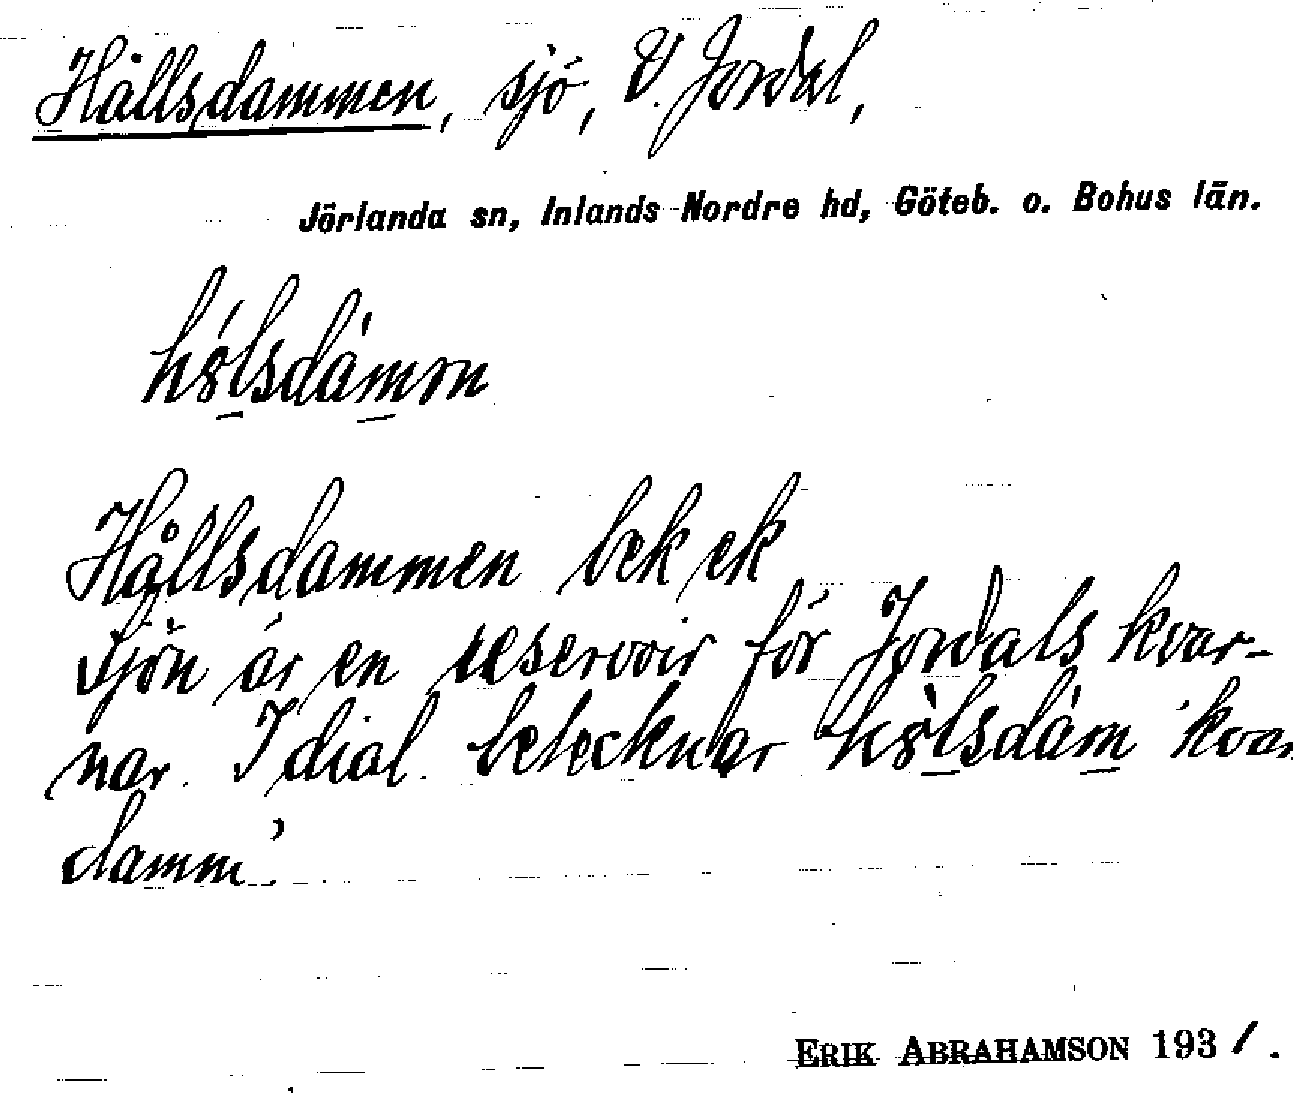 Hållsdammen, sjö, V. Jordal,
Jörlanda sn, Inlands Nordre hd, Göteb. o. Bohus län.
hɔ́lsdàmm
Hållsdammen bek ek
Sjön är en reservoir för Jordals kvar-
nar. I dial. betecknar hɔ̀lsdàm 'kvar
damm'.
ERIK ABRAHAMSON 1931.